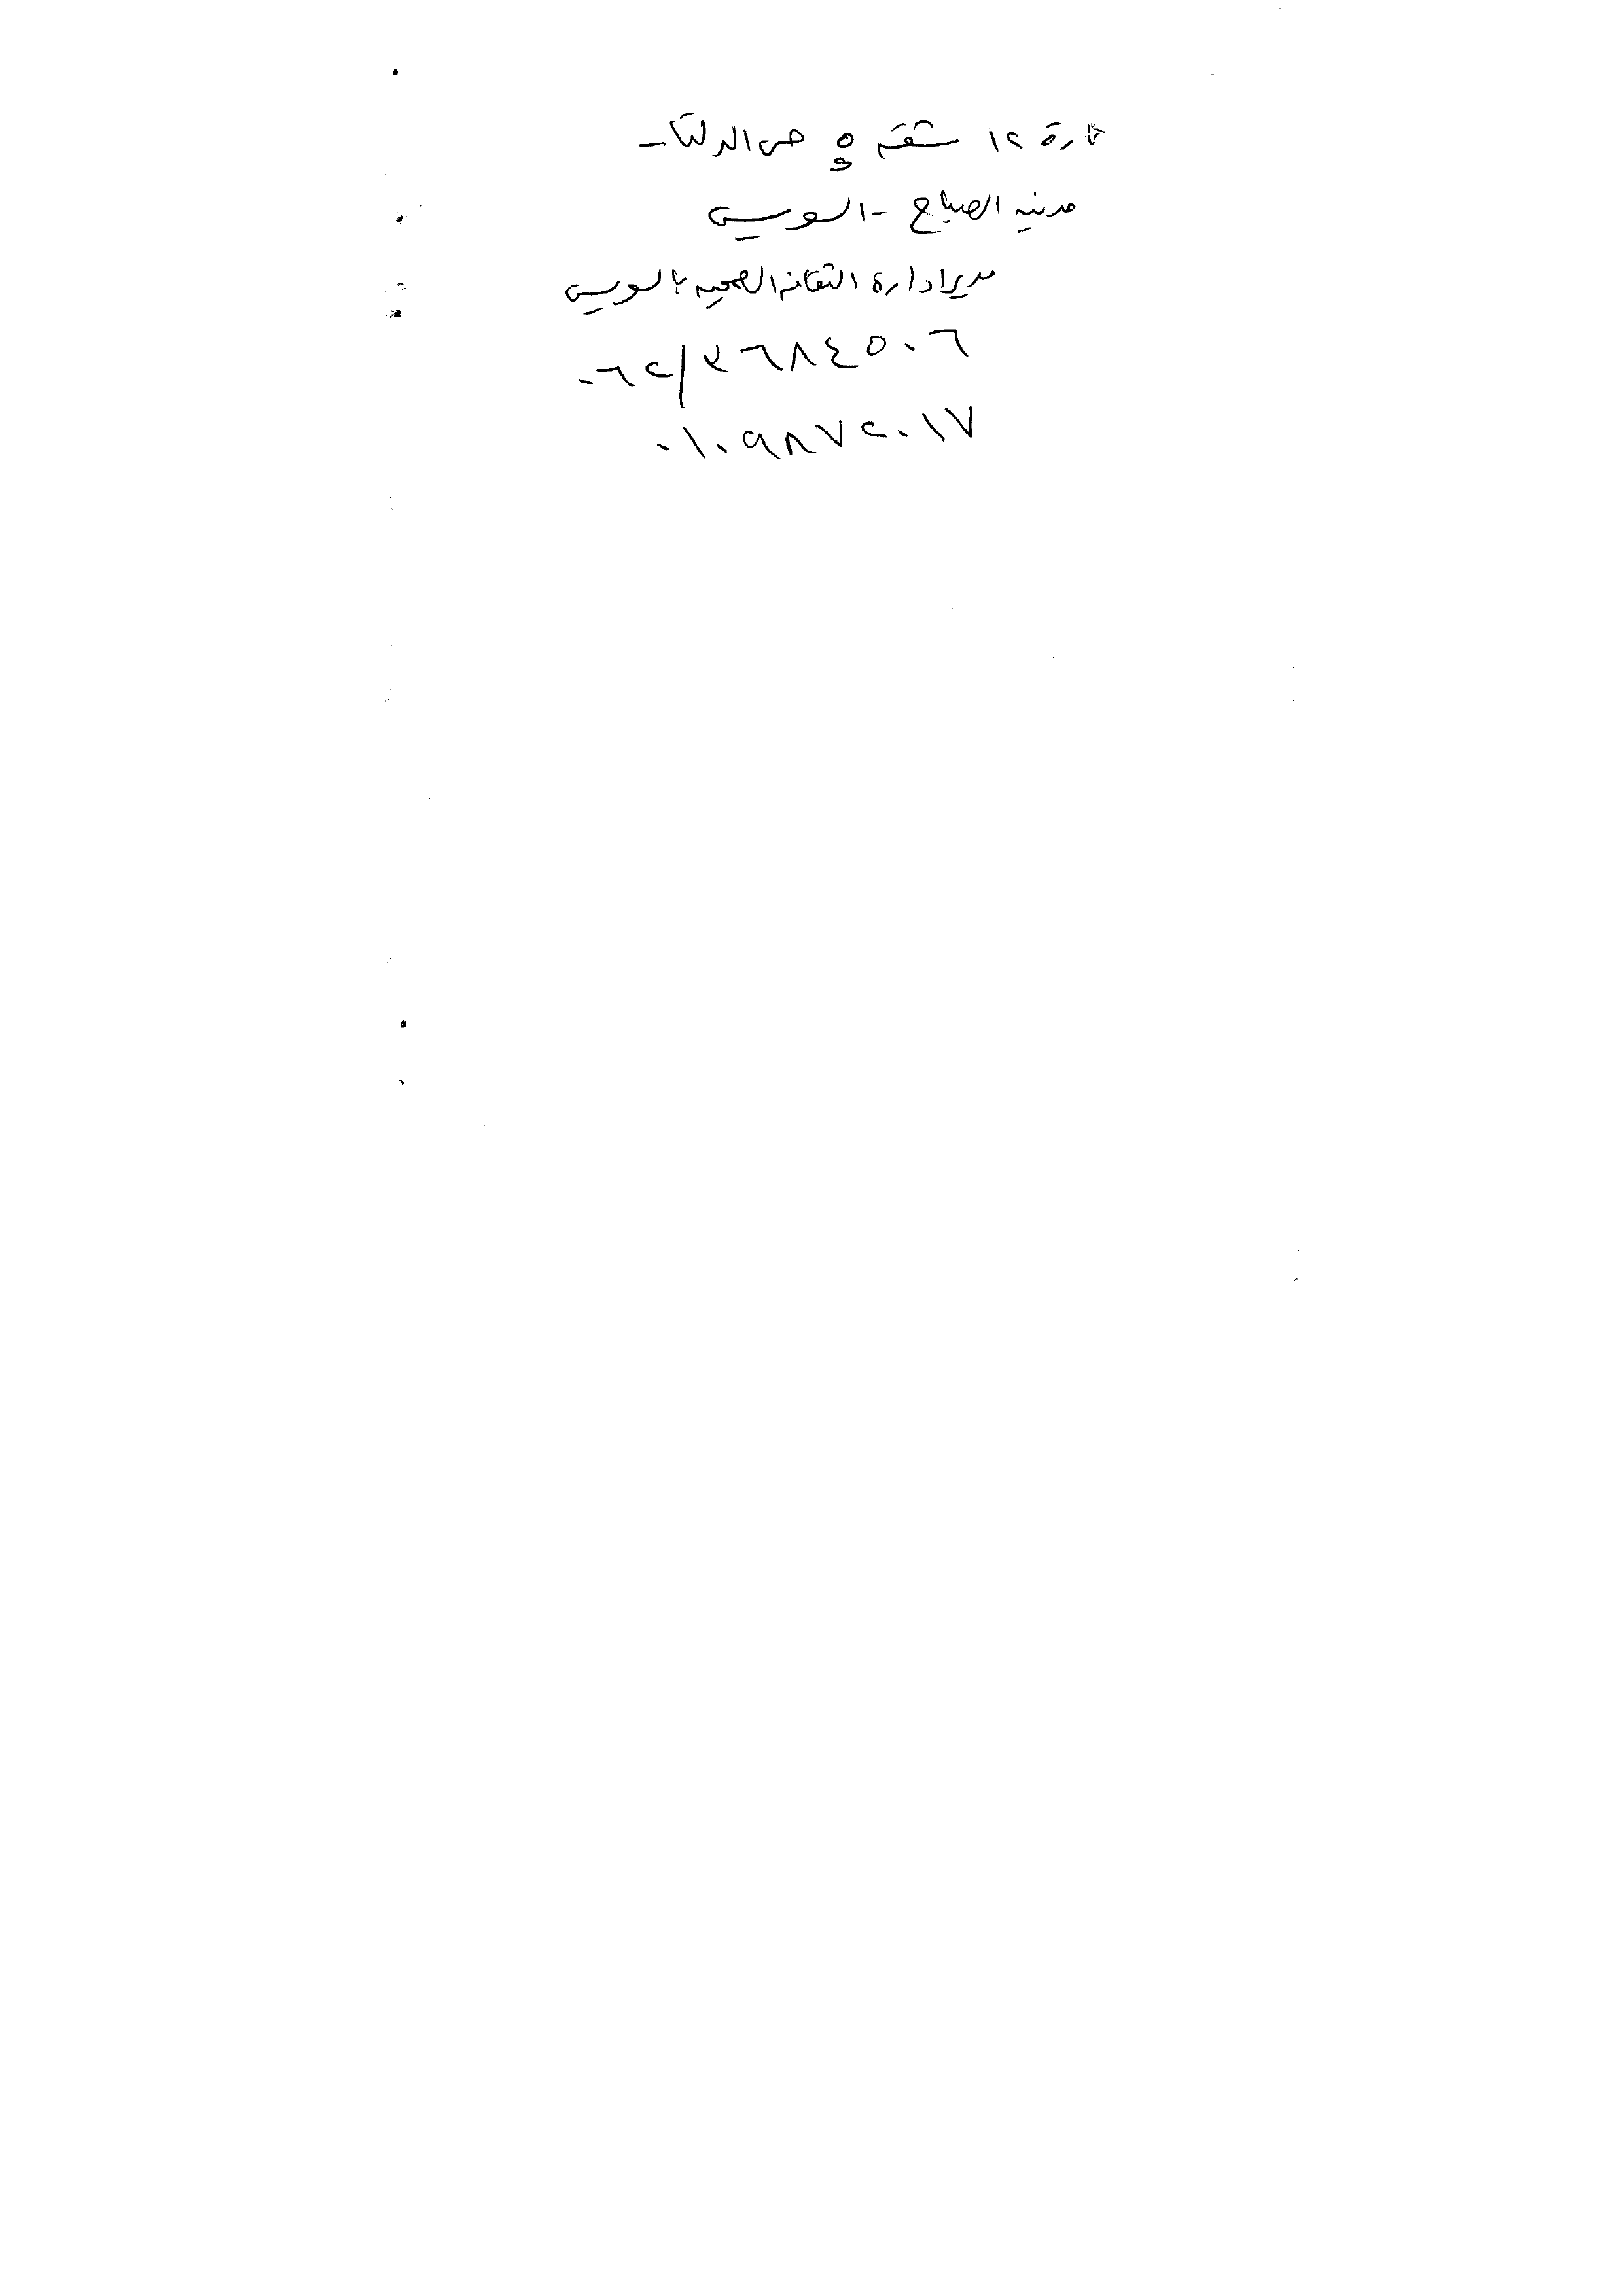 عمارة ١٢ شقة ٥ حى الدلتا -
مدينه الصباح - السويس
مدير ادارة الثقافه الصحيه بالسويس
٠٦٢/٣٦٨٤٥٠٦
٠١٠٩٨٧٢٠١٧